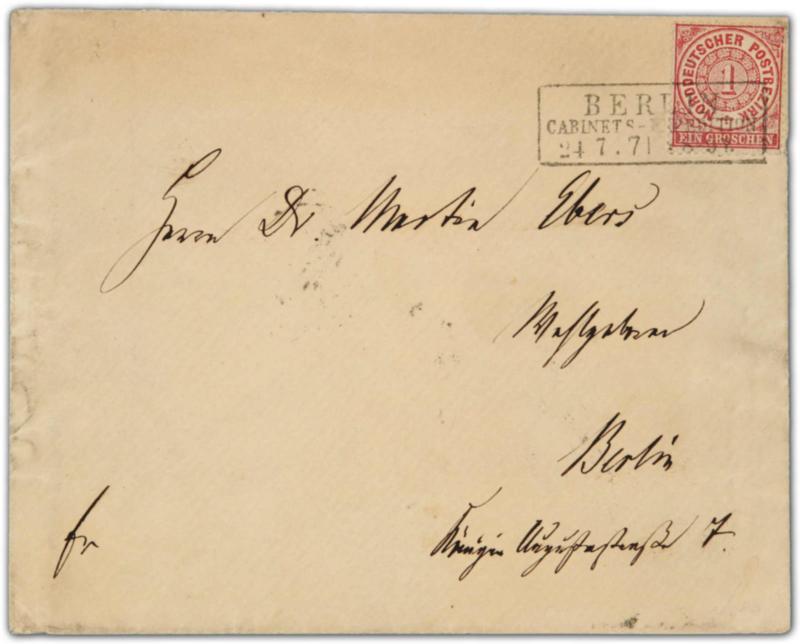 NORDDEUTSCHER POSTBEZIRK
1
EIN GROSCHEN
BERLIN
CABINETS-EXPEDITION
24 7.71
Herrn Dr Martin Ebers
Wohlgeboren
Berlin
fr
Königin Augustastraße 7.